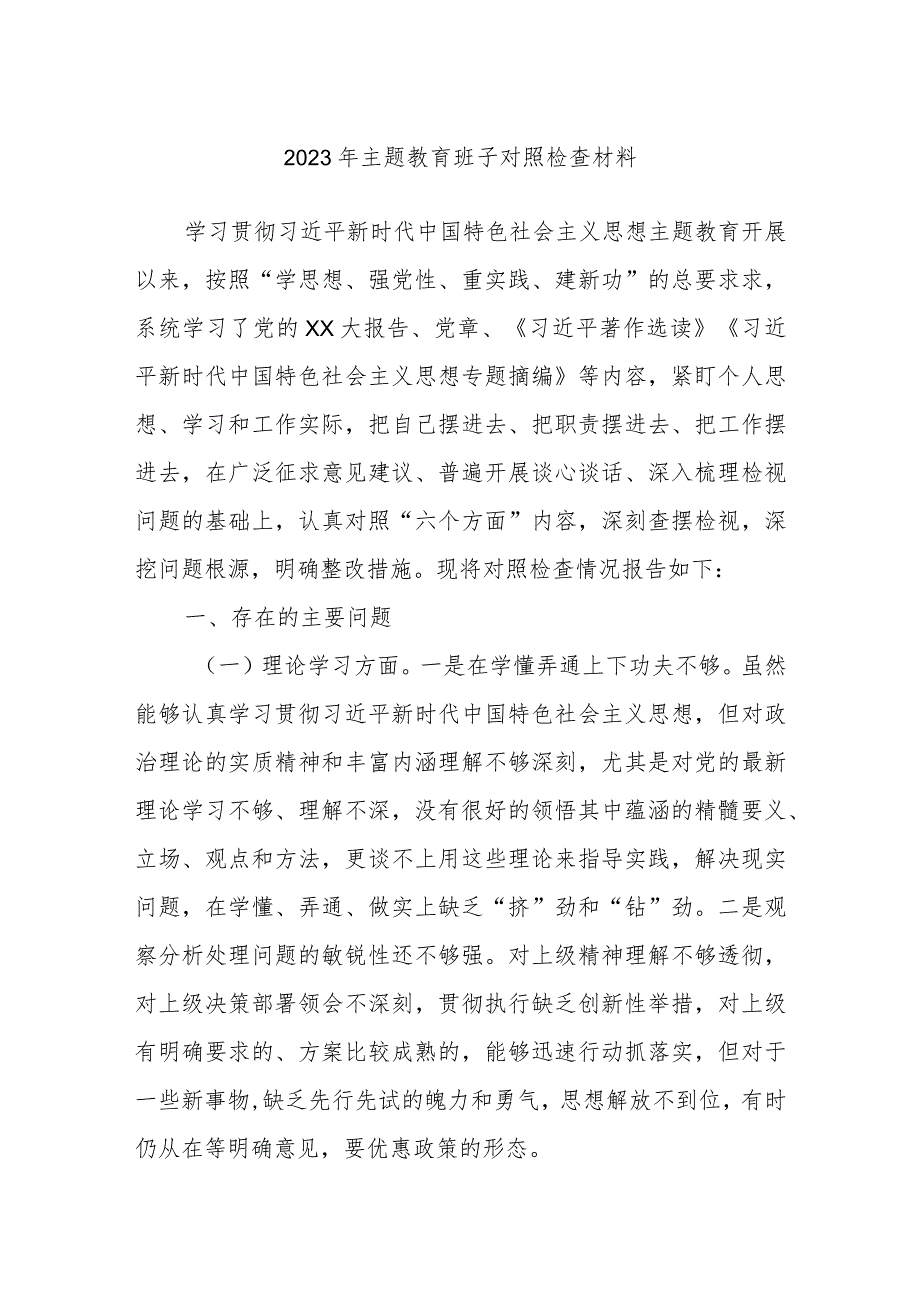 2023 年主题教育班子对照检查材料
学习贯彻习近平新时代中国特色社会主义思想主题教育开展
以来，按照“学思想、强党性、重实践、建新功”的总要求求，
系统学习了党的 XX 大报告、党章、《习近平著作选读》《习近
平新时代中国特色社会主义思想专题摘编》等内容，紧盯个人思
想、学习和工作实际，把自己摆进去、把职责摆进去、把工作摆
进去，在广泛征求意见建议、普遍开展谈心谈话、深入梳理检视
问题的基础上，认真对照“六个方面”内容，深刻查摆检视，深
挖问题根源，明确整改措施。现将对照检查情况报告如下：
一、存在的主要问题
（一）理论学习方面。一是在学懂弄通上下功夫不够。虽然
能够认真学习贯彻习近平新时代中国特色社会主义思想，但对政
治理论的实质精神和丰富内涵理解不够深刻，尤其是对党的最新
理论学习不够、理解不深，没有很好的领悟其中蕴涵的精髓要义、
立场、观点和方法，更谈不上用这些理论来指导实践，解决现实
问题，在学懂、弄通、做实上缺乏“挤”劲和“钻”劲。二是观
察分析处理问题的敏锐性还不够强。对上级精神理解不够透彻，
对上级决策部署领会不深刻，贯彻执行缺乏创新性举措，对上级
有明确要求的、方案比较成熟的，能够迅速行动抓落实，但对于
一些新事物,缺乏先行先试的魄力和勇气，思想解放不到位，有时
仍从在等明确意见，要优惠政策的形态。